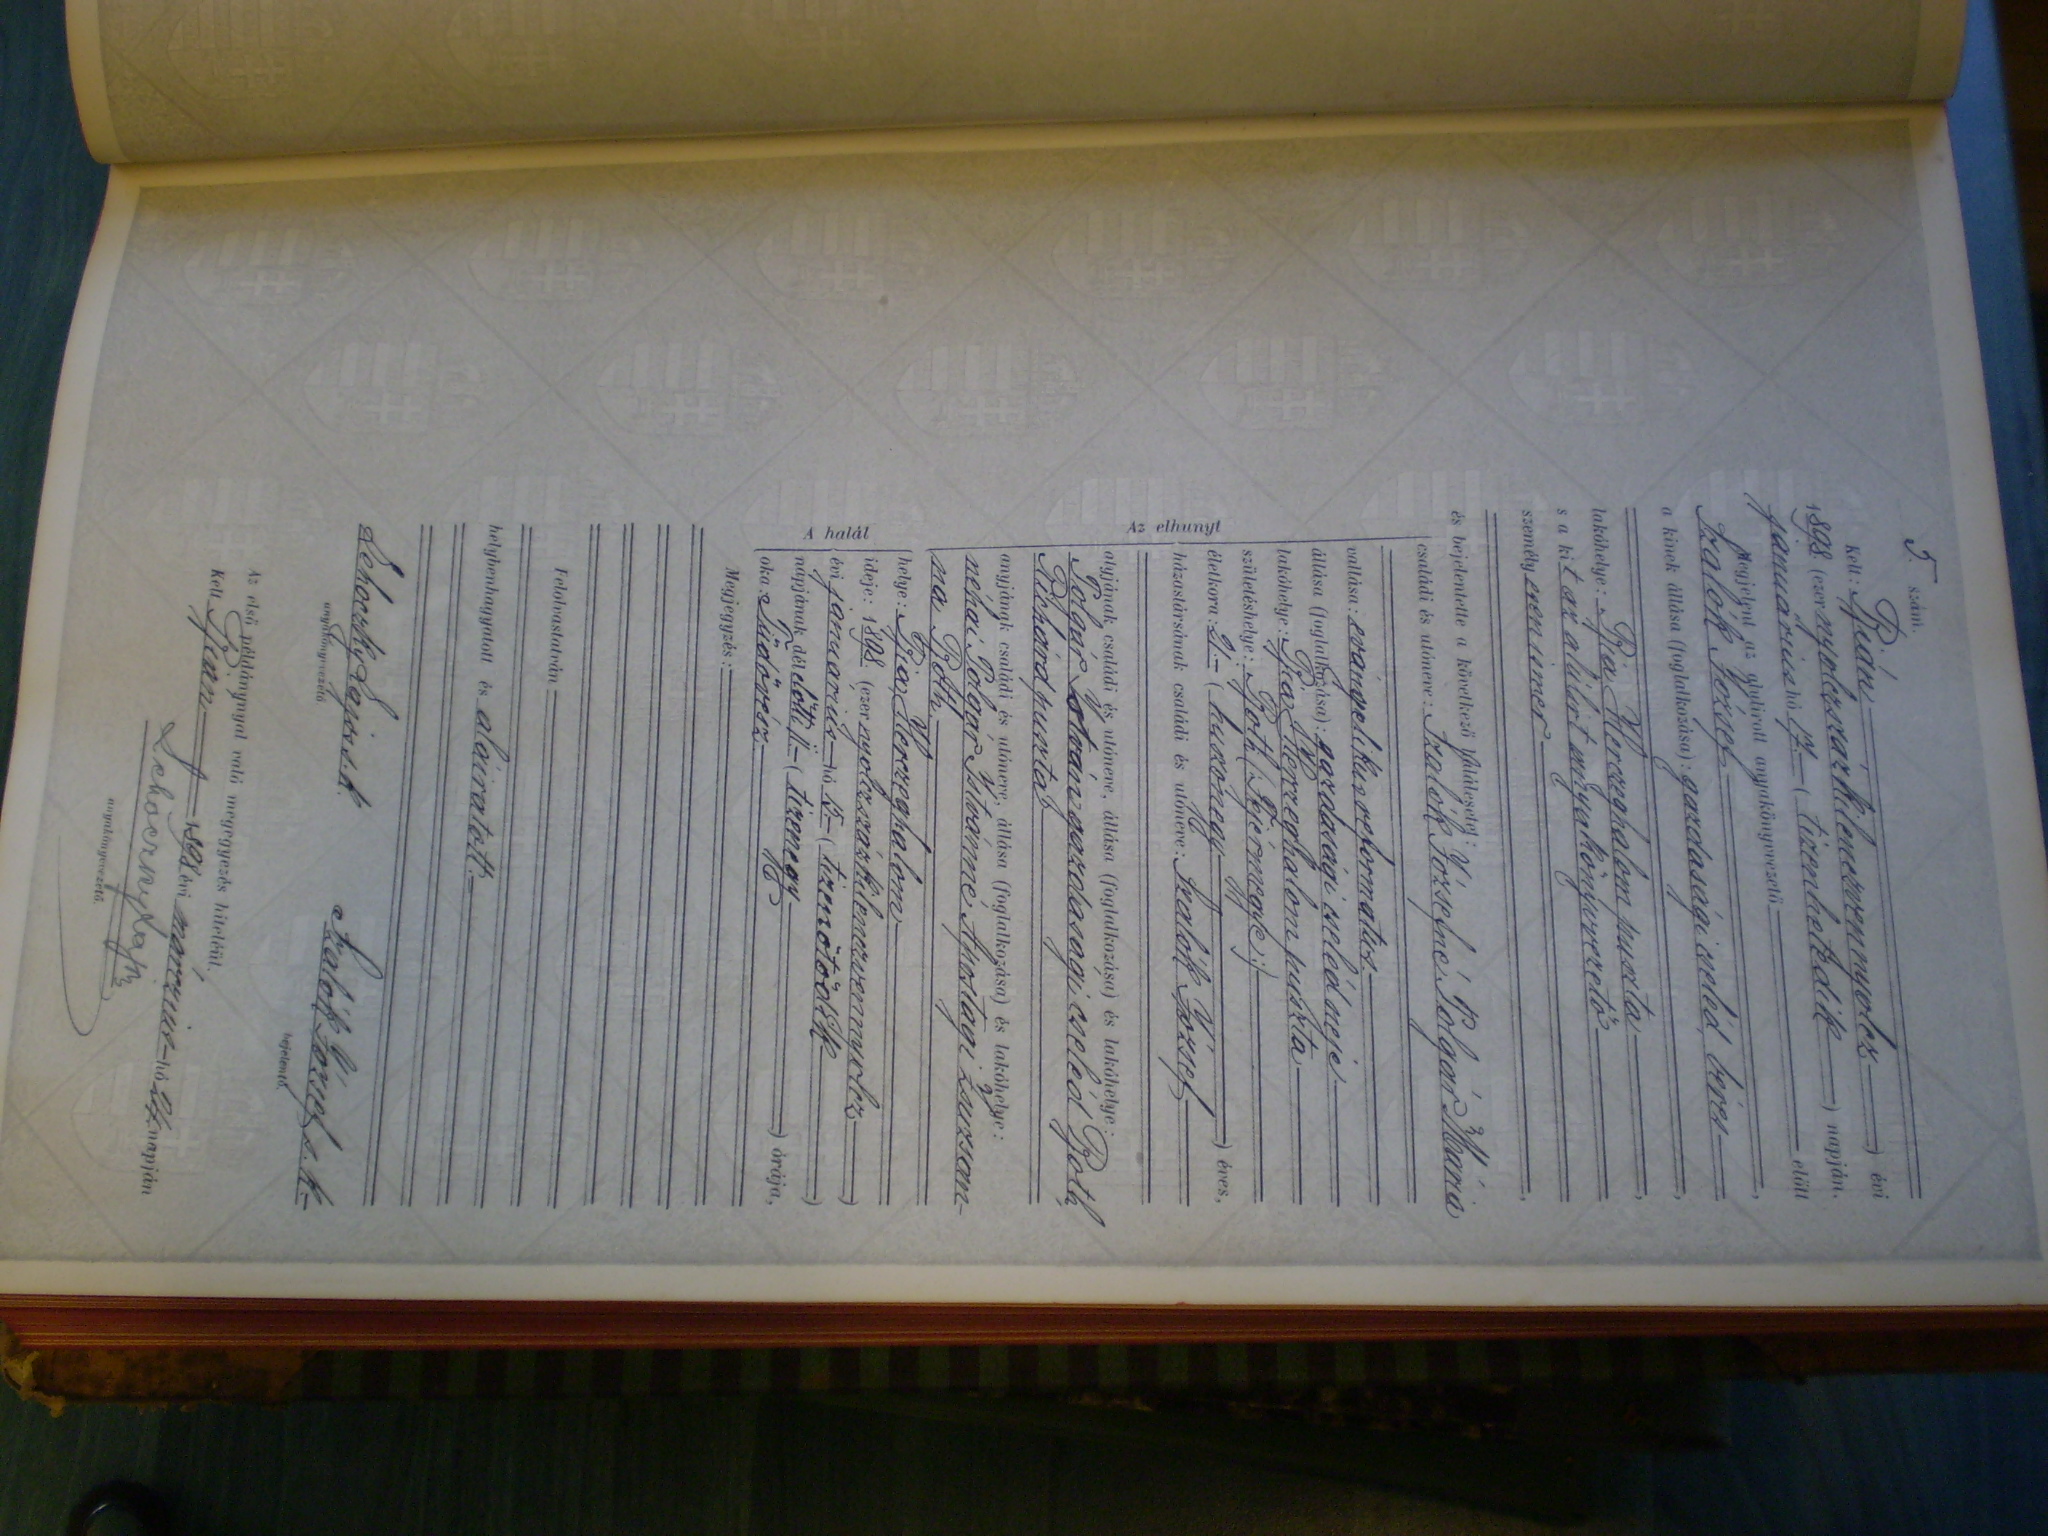 5. szám.
Kelt: Bián, 
1898 (ezer nyolczszázkilenczvennyolcz ) évi
januárius hó 17. ( tizenhetedik ) napján.
Megjelent az alulirott anyakönyvvezető előtt
Szalók József
a kinek állása (foglalkozása): gazdasági cseléd, béres,
lakóhelye: Bia, Herczeghalom puszta,
s a kit az alulirt anyakönyvvezető
személyesen ismer,
és bejelentette a következő halálesetet:
családi és utóneve: Szalók Józsefné, Polgár Mária
Az elhunyt
vallása: evangelikus reformatus
állása (foglalkozása): gazdasági cseléd neje
lakóhelye: Bia, Herczeghalom puszta
születéshelye: Both (Fejérmegye)
életkora: 21 ( huszonegy ) éves,
házastársának családi és utóneve: Szalók József
atyjának családi és utóneve, állása (foglalkozása) és lakóhelye:
Polgár István gazdasági cseléd Both,
Richárd puszta
anyjának családi és utóneve, állása (foglalkozása) és lakóhelye:
néhai Polgár Istvánné, Zsuzsan-
na Both
A halál
helye: Bia, Herczeghalom
ideje: 1898 (ezer nyolczszázkilenczvennyolcz )
évi januarius hó 15 ( tizenötödik )
napjának délelőtti 11 ( tizenegy ) órája,
oka: Tüdővész
Megjegyzés:
Felolvastatván
helybenhagyatott és aláiratott.
Lehoczky Lajos s.k. Szalók József s.k.
anyakönyvvezető bejelentő.
Az első példánynyal való megegyezés hiteléül.
Kelt Bián 1898 évi márczius hó 24 napján
Lehoczky Lajos
anyakönyvvezető.